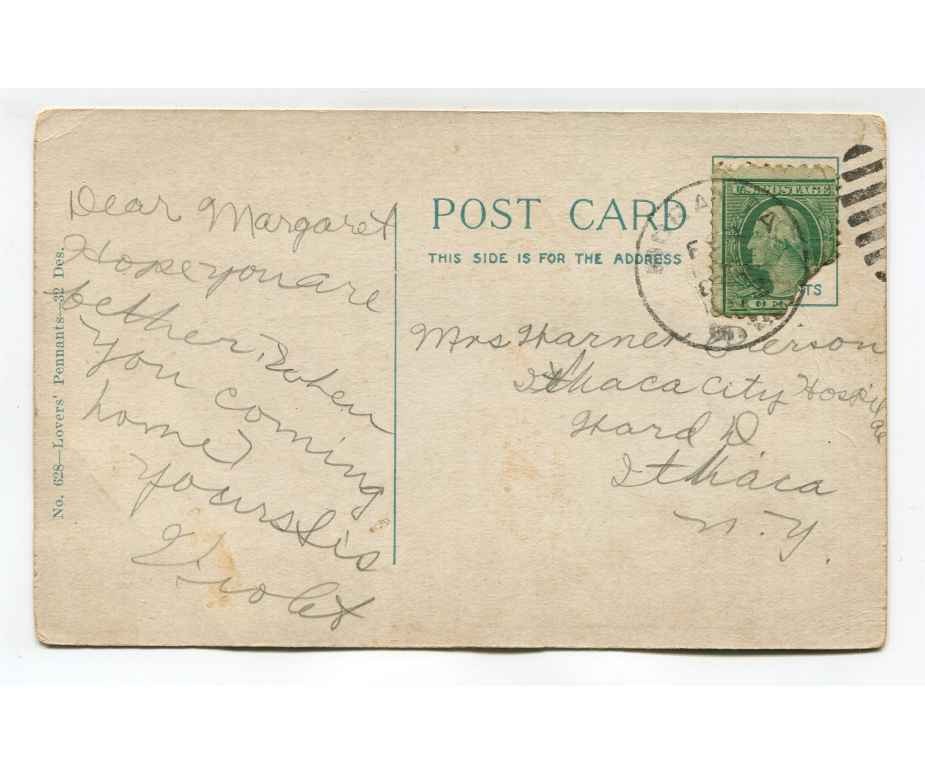 No. 628—Lovers' Pennants—32 Des.
Dear Margaret
Hope you are
bether. When
You coming
home?
Yours Sis
Violet
POST CARD
THIS SIDE IS FOR THE ADDRESS
U.S. POSTAGE
NTS
Mrs Warner
Ithaca City Hospital
Ward D
Ithaca
N.Y.